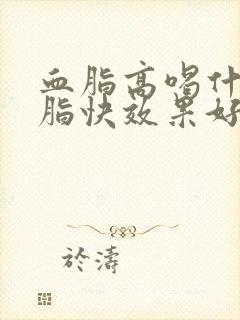 血脂高喝什
脂快效果好
於濤